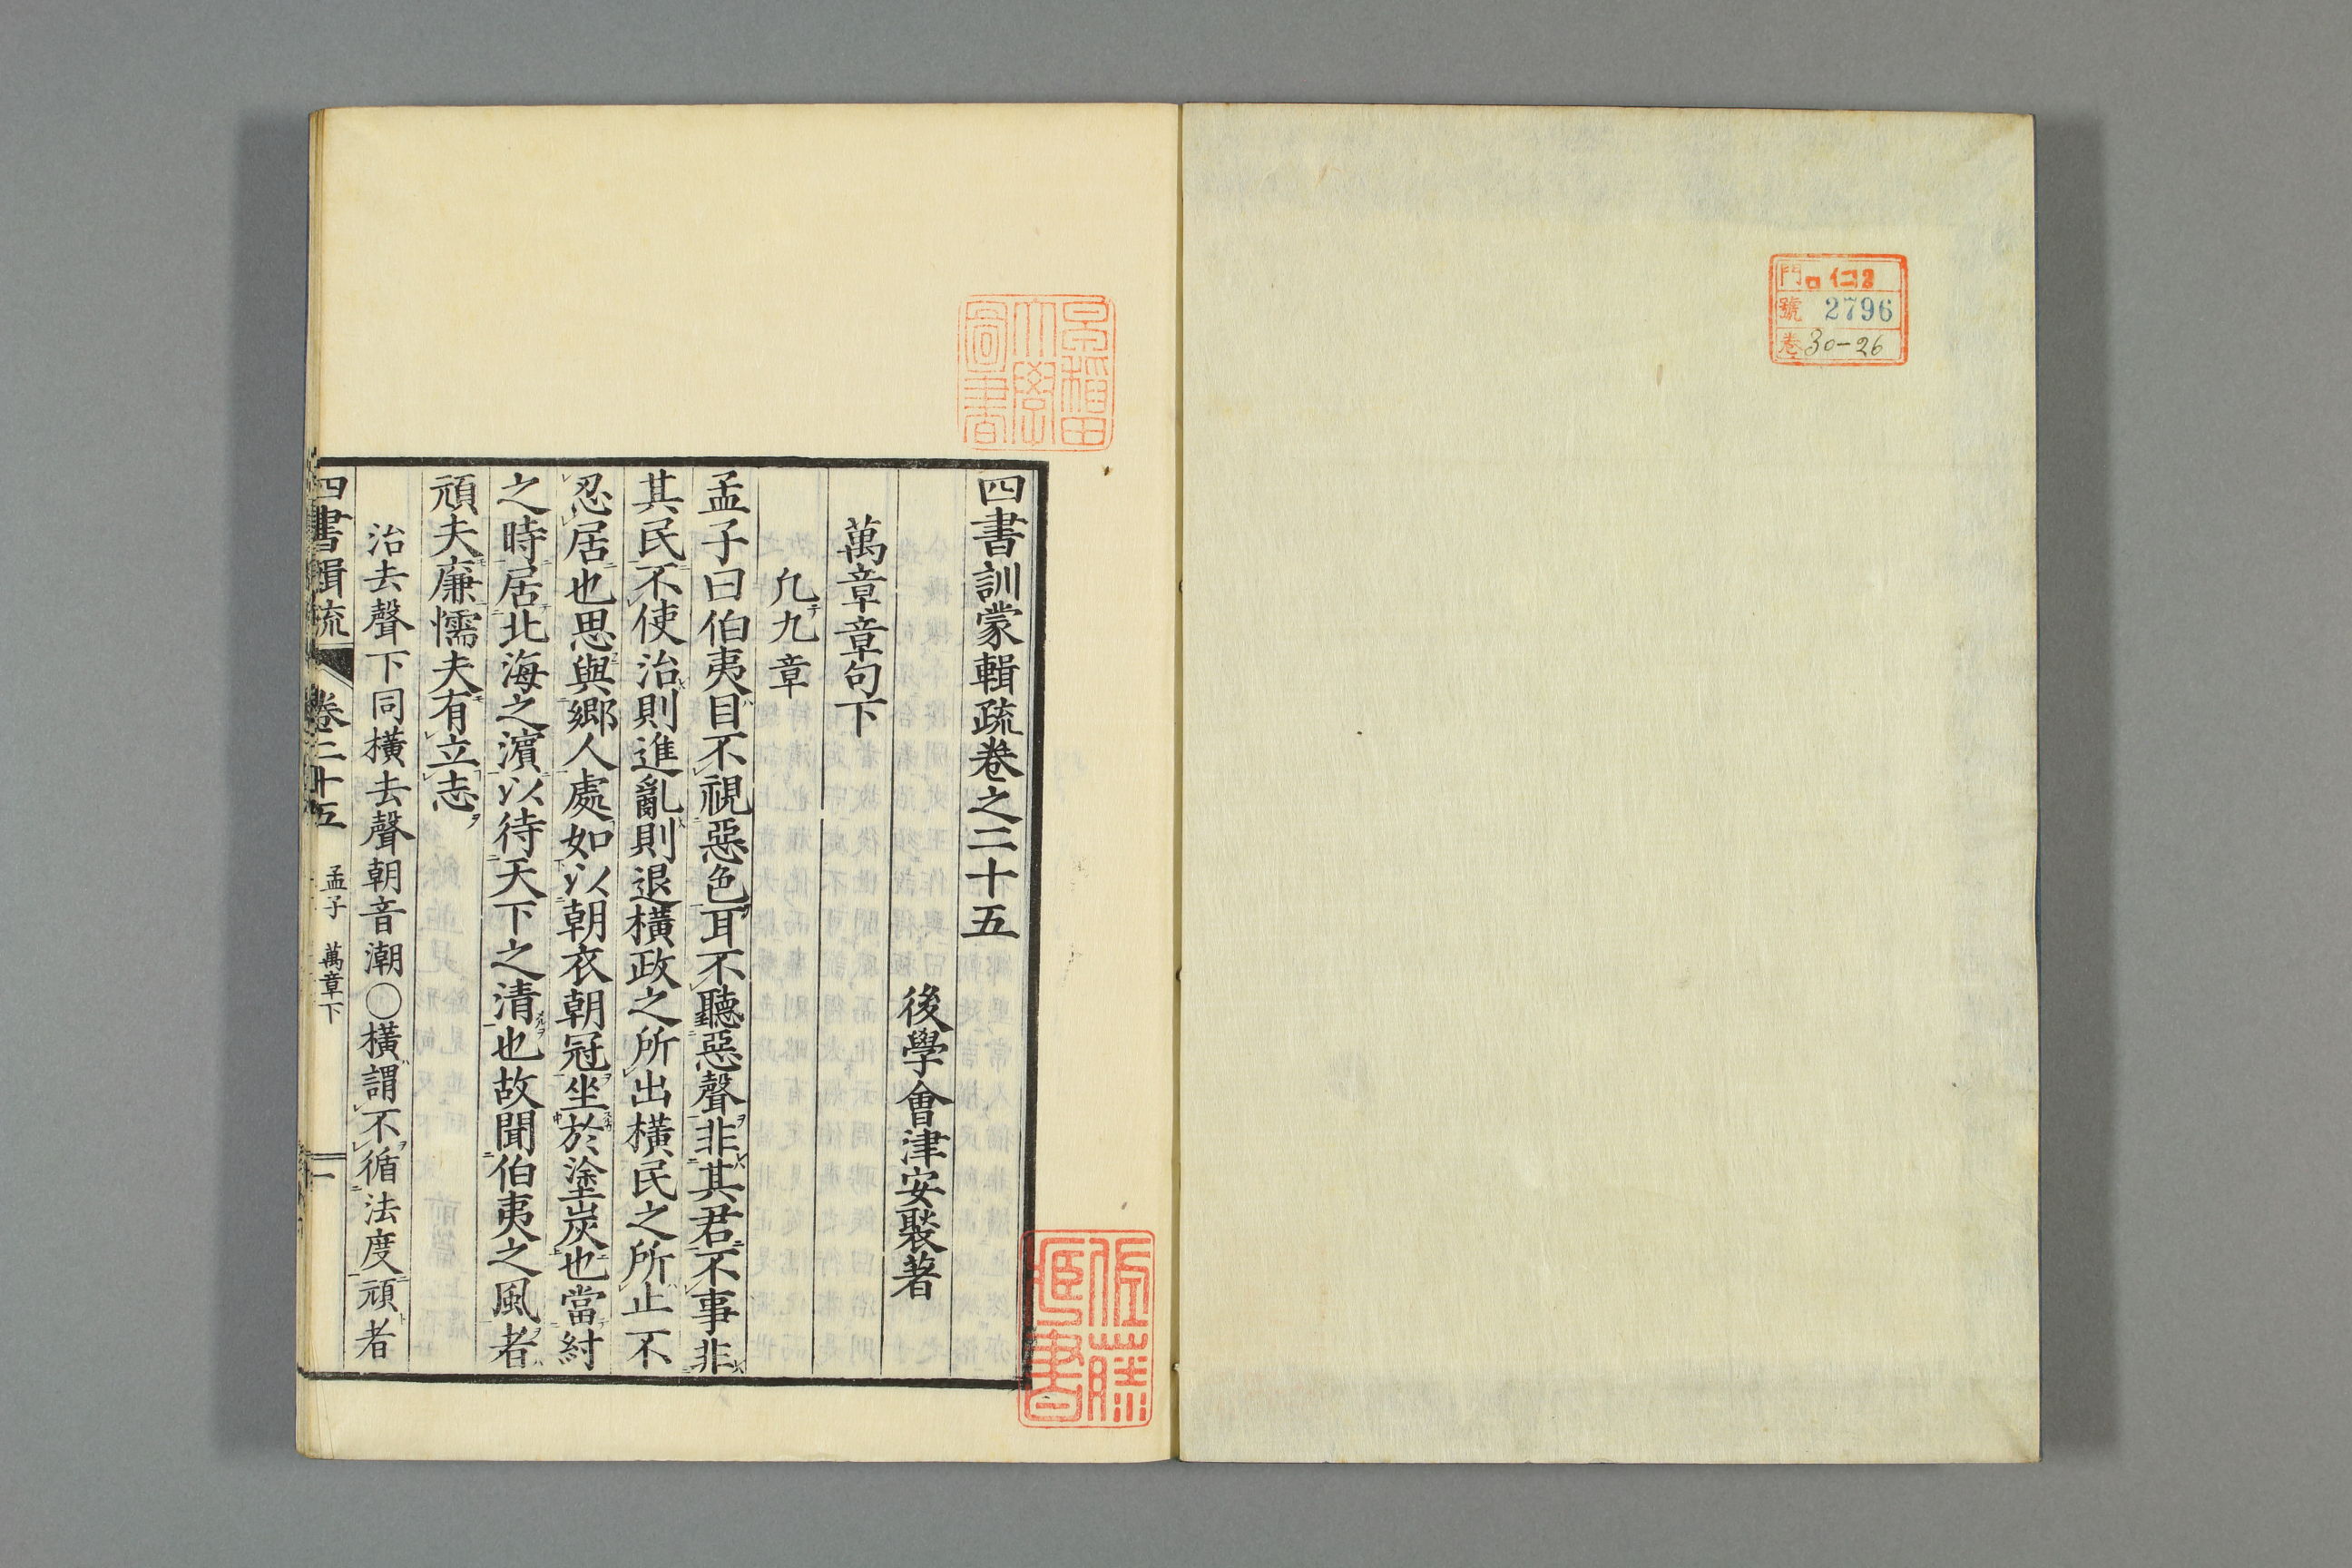 門 口 仁13
號 2796
卷 30-26
早稲田
大學
圖書
四書訓蒙輯疏卷之二十五
後學會津安褧著
萬章章句下
凡九章
孟子曰伯夷目不視惡色耳不聽惡聲非其君不事非
其民不使治則進亂則退橫政之所出橫民之所止不
忍居也思與鄉人處如以朝衣朝冠坐於塗炭也當紂
之時居北海之濵以待天下之清也故聞伯夷之風者
頑夫廉懦夫有立志
治去聲下同橫去聲朝音潮○橫謂不循法度頑者
四書輯疏 卷二十五 孟子 萬章下 一
佐藤
藏書